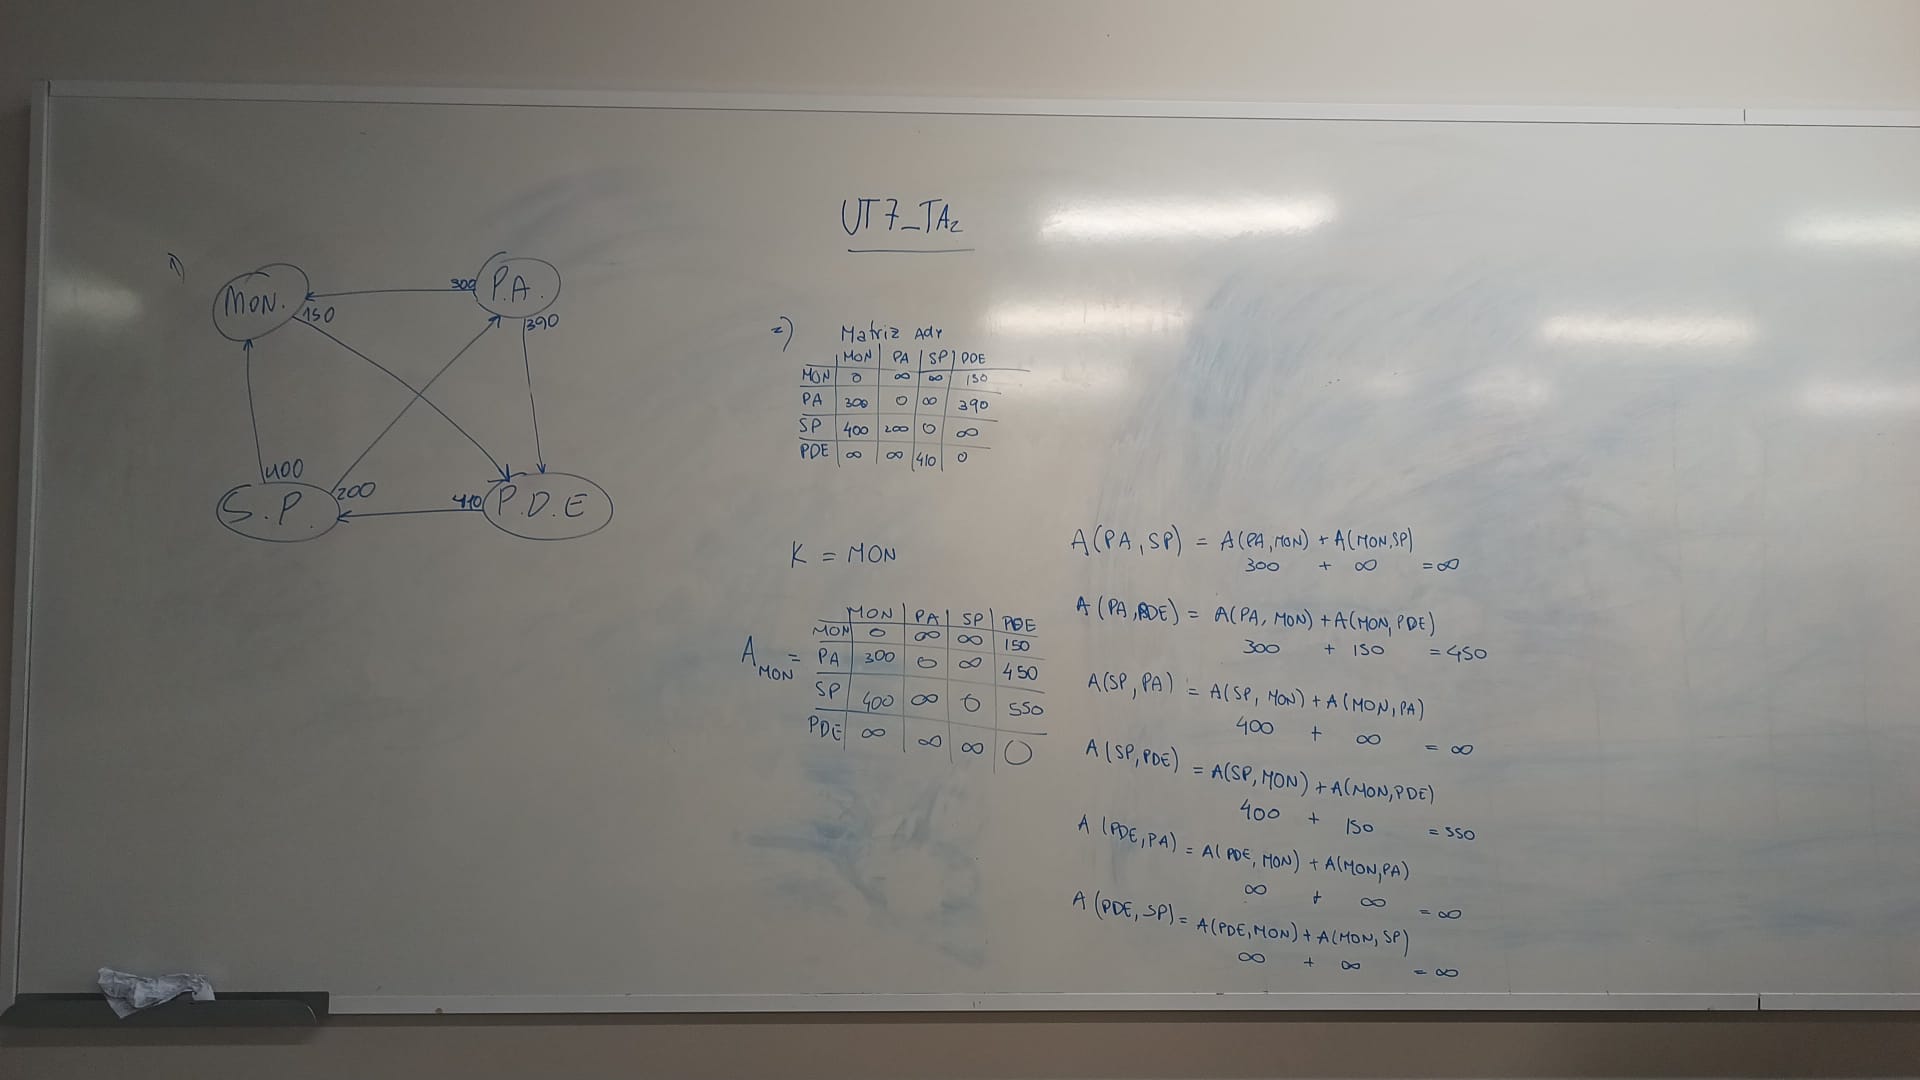 UT7_TA2
1)
MON.
P.A.
300
150
390
400
200
410
S.P.
P.D.E
2) Matriz Ady
MON PA SP PDE
MON 0 ∞ ∞ 150
PA 300 0 ∞ 390
SP 400 200 0 ∞
PDE ∞ ∞ 410 0
K = MON
A MON =
MON PA SP PDE
MON 0 ∞ ∞ 150
PA 300 0 ∞ 450
SP 400 ∞ 0 550
PDE ∞ ∞ ∞ 0
A(PA,SP) = A(PA,MON) + A(MON,SP)
300 + ∞ = ∞
A(PA,PDE) = A(PA, MON) + A(MON, PDE)
300 + 150 = 450
A(SP,PA) = A(SP, MON) + A(MON,PA)
400 + ∞ = ∞
A(SP,PDE) = A(SP,MON) + A(MON,PDE)
400 + 150 = 550
A(PDE,PA) = A(PDE, MON) + A(MON,PA)
∞ + ∞ = ∞
A(PDE, SP) = A(PDE,MON) + A(MON, SP)
∞ + ∞ = ∞